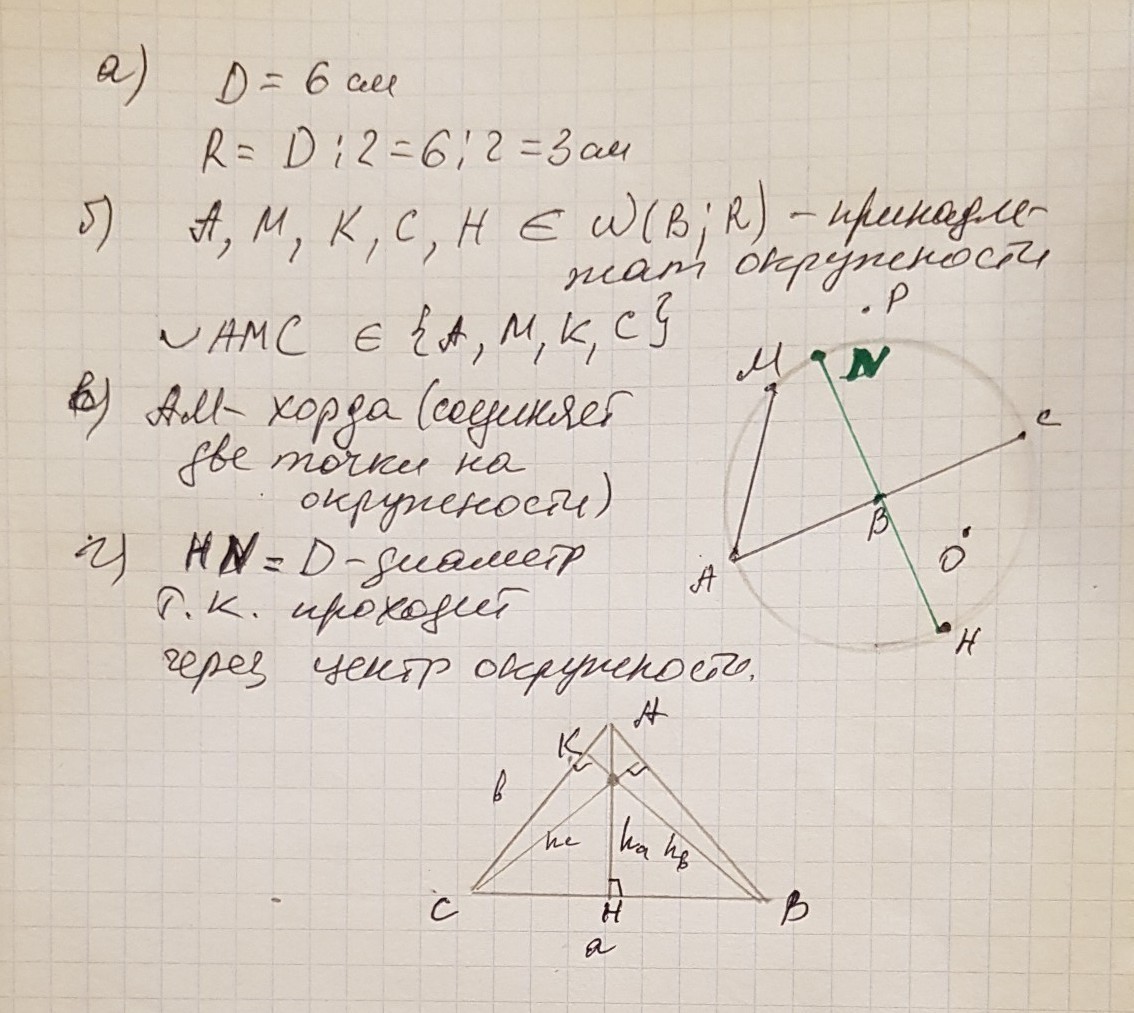 а) D = 6 см
R = D : 2 = 6 : 2 = 3 см
б) A, M, K, C, H ∈ W(B; R) – принадле-
жат окружности
◡AMC ∈ {A, M, K, C}
P
M N
C
в) AM – хорда (соединяет
две точки на
окружности)
B
O
A
г) HN = D – диаметр
т.к. проходит
H
через центр окружности.
A
K
b
hc ha hb
C H B
a